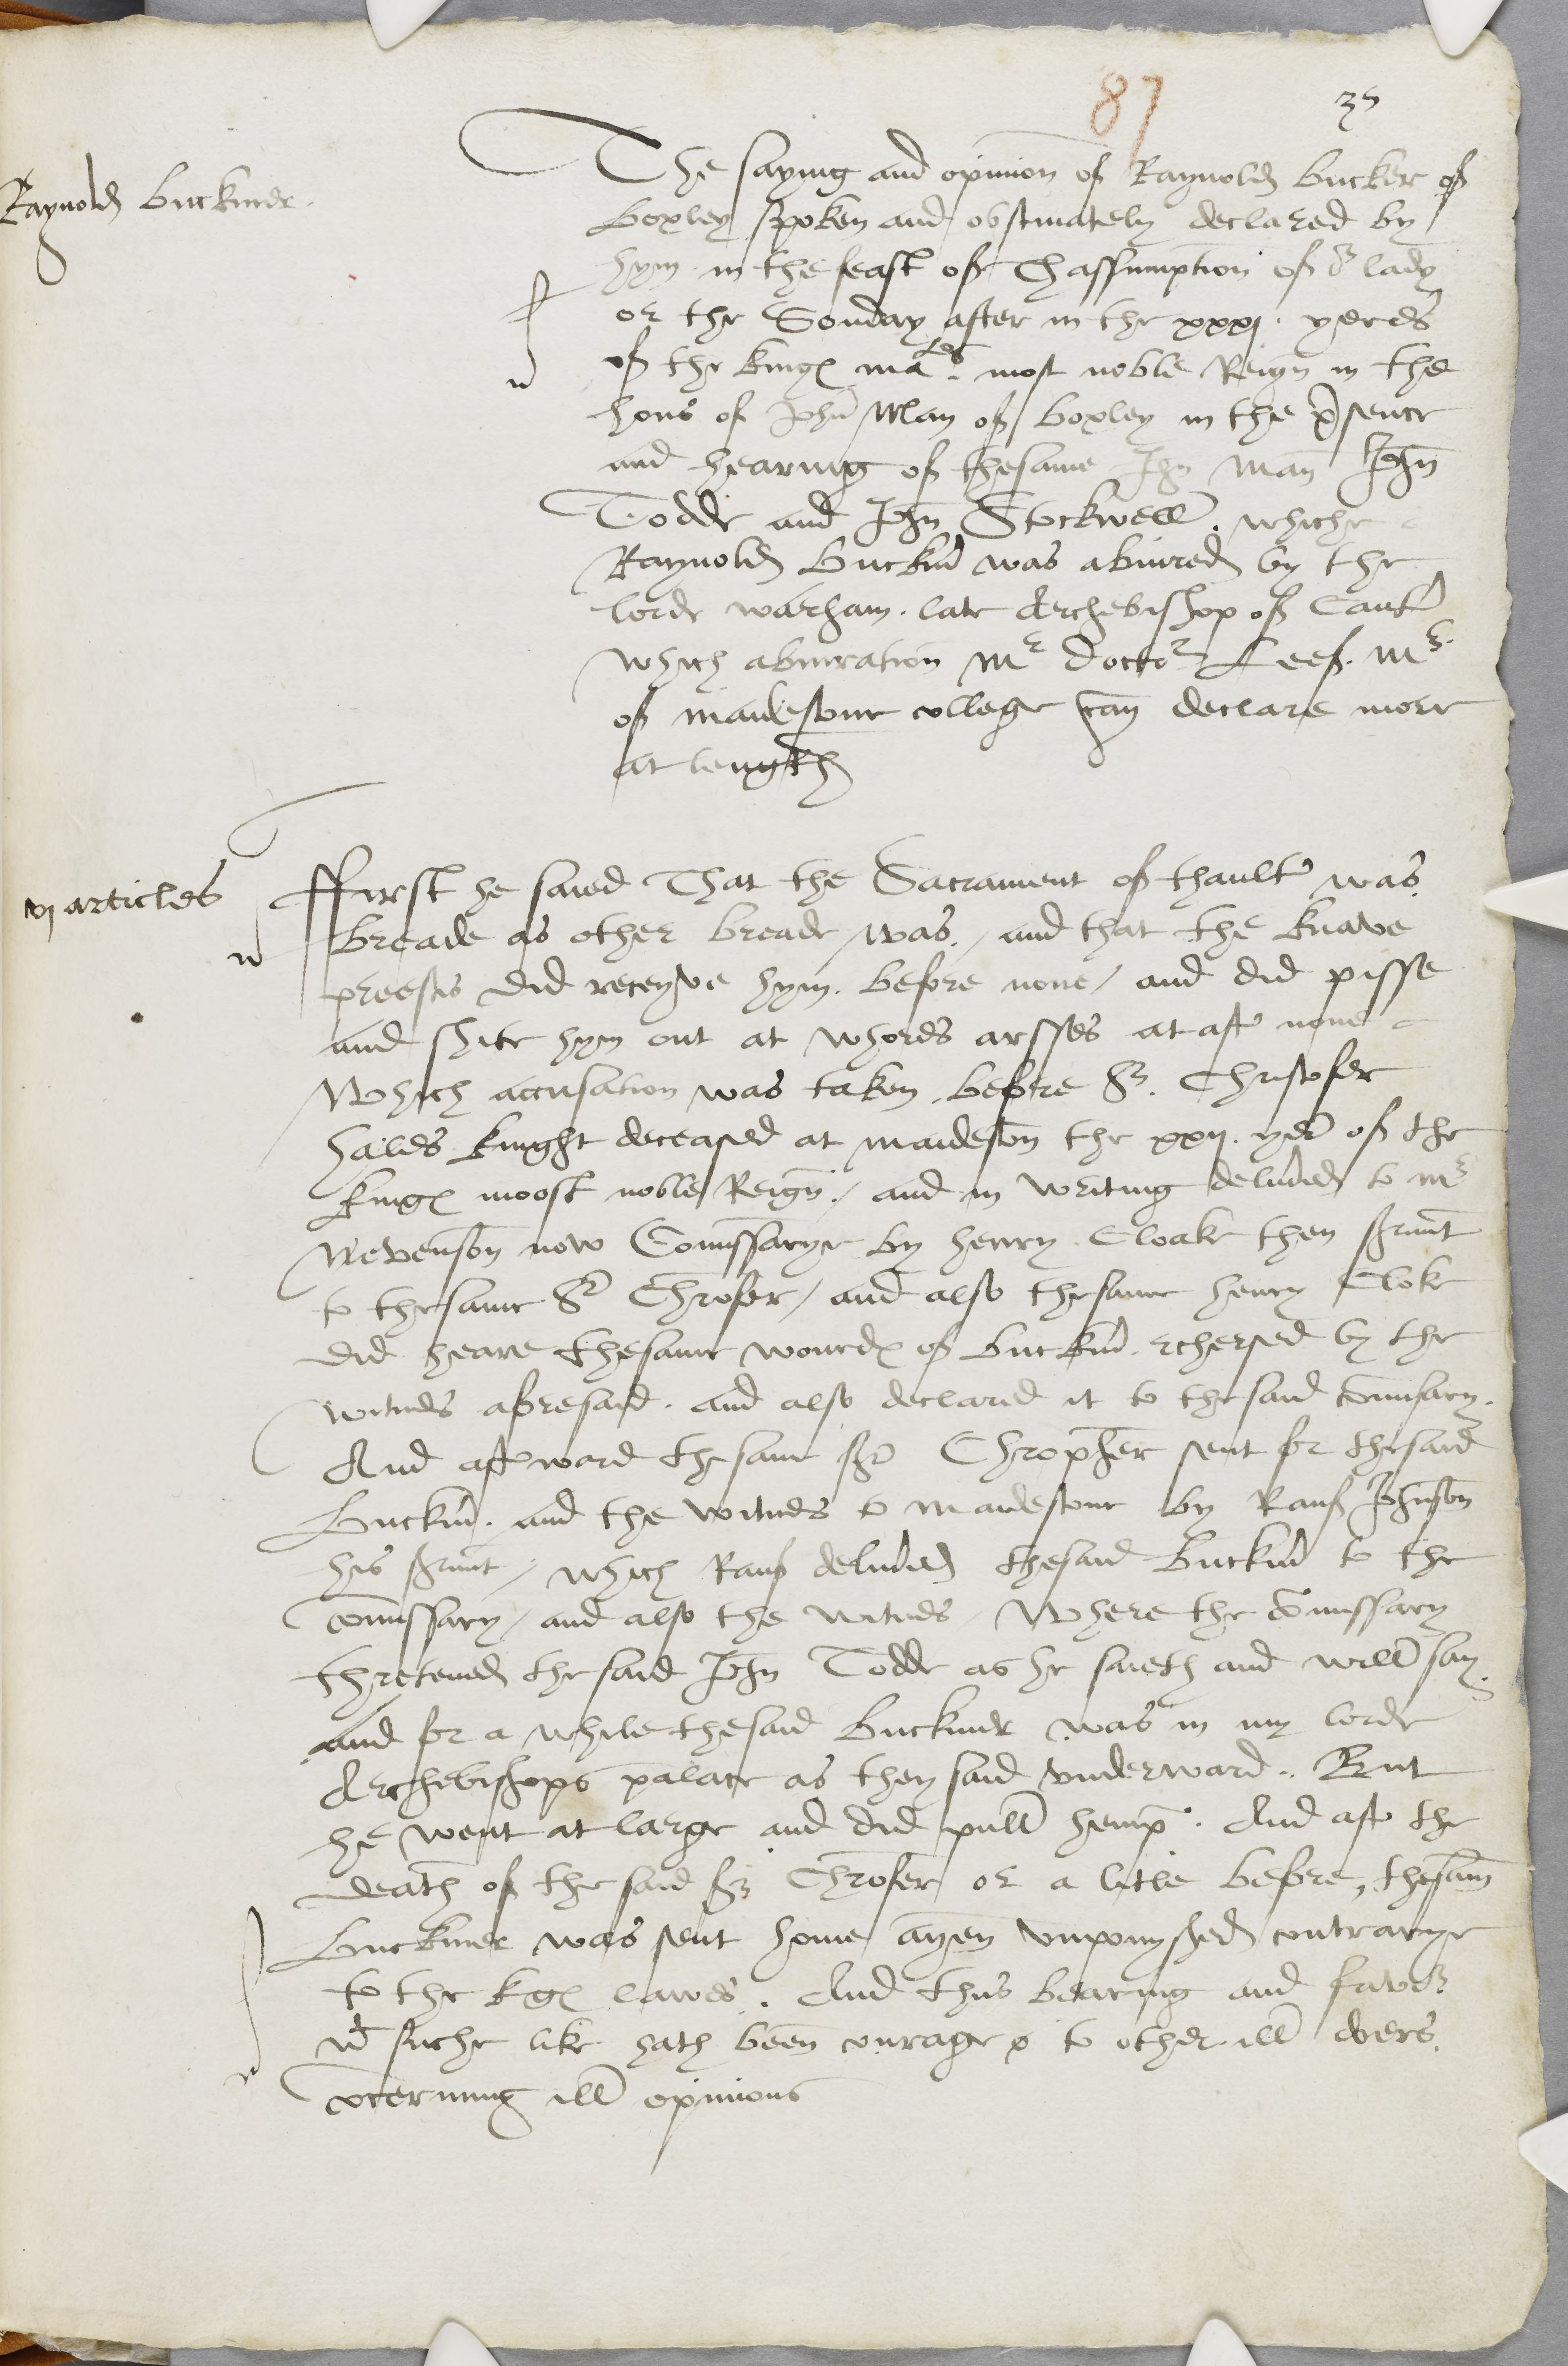 87
35
Raynold Buckmer.
The saying and opinion of Raynold Bucker of
Boxley spoken and obstinately declared by
hym in the feast of Thassumption of or lady
or the Sonday after in the xxxj. yeres
of the kinges mates. most noble Reign in the
hous of John Man of Boxley in the psence
and hearing of thesame Jhn Man John
Todde and John Stockwell. whiche
Raynold Buckm was abiured by the
lorde warham. late Archebishop of Cant
which abiuration Mr doctor Leef. Mr
of maidestone college can declare more
at length
vj articles
ffirst he saied That the Sacrament of thault was
breade as other breade was. / and that the knave
preestes did receyve hym before none / and did pisse
and shite hym out at whores arsses at aft none
Which accusation was taken before Sr. Christofer
hales knight deceased at maideston the xxxij. yer of the
kinges moost noble Reign. / and in writing delyued to mr
Nevenson now Comissarye by henry Cloake then sruant
to thesame Sr Chrofer / and also thesame henry Cloke
did heare thesame wourdes of Buckm rehersed by the
witnes aforesaid. and also declared it to thesaid comissary.
And aftward thesame Sr Chropher sent for thesaid
Buckm. and the witnes to maidestone by Rauf Johnson
his sruant / which Rauf delyued thesaid Buckm to the
comissary / and also the witnes / Where the comissary
thretened the said John Todde as he saieth and will say.
and for a while thesaid Buckmer was in my lorde
Archebishops palace as they said vnderward. But
he went at large and did pull hemp. And aft the
death of the said Sr Chrofer or a litle before, thesam
Buckmer was sent home ayen vnponyshed contrarye
to the kges lawes. And thus bearing and favor
wt suche like hath been courage to other ill doers.
cocerning ill opinions